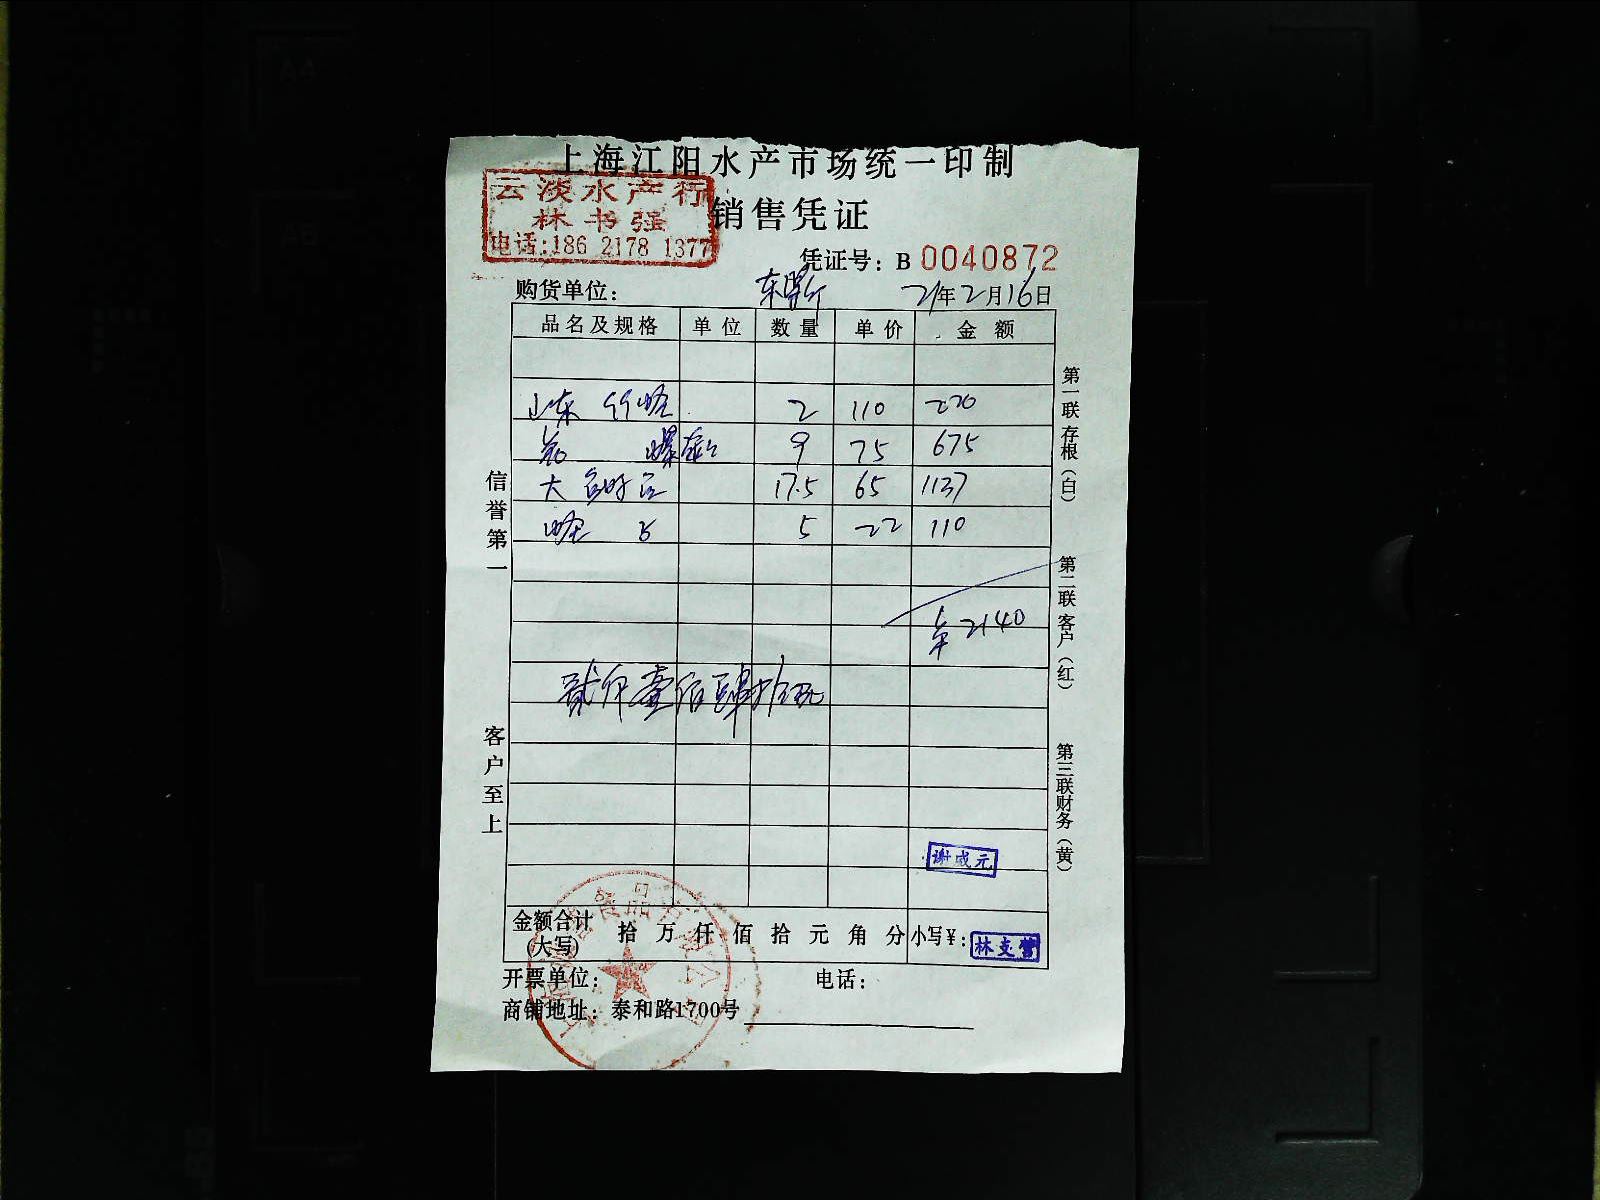 上海江阳水产市场统一印制
云淡水产行
林书强
电话:186 2178 1377
销售凭证
凭证号: B 0040872
购货单位: 21年2月16日
品名及规格 单位 数量 单价 金额
山东 竹蛏 2 110 220
9 75 675
大 17.5 65 1137
蛏 5 22 110
2140
贰仟壹佰肆拾元
信誉第一
客户至上
第一联存根(白)
第二联客户(红)
第三联财务(黄)
谢成元
金额合计(大写) 拾 万 仟 佰 拾 元 角 分 小写¥:
开票单位: 电话:
商铺地址: 泰和路1700号